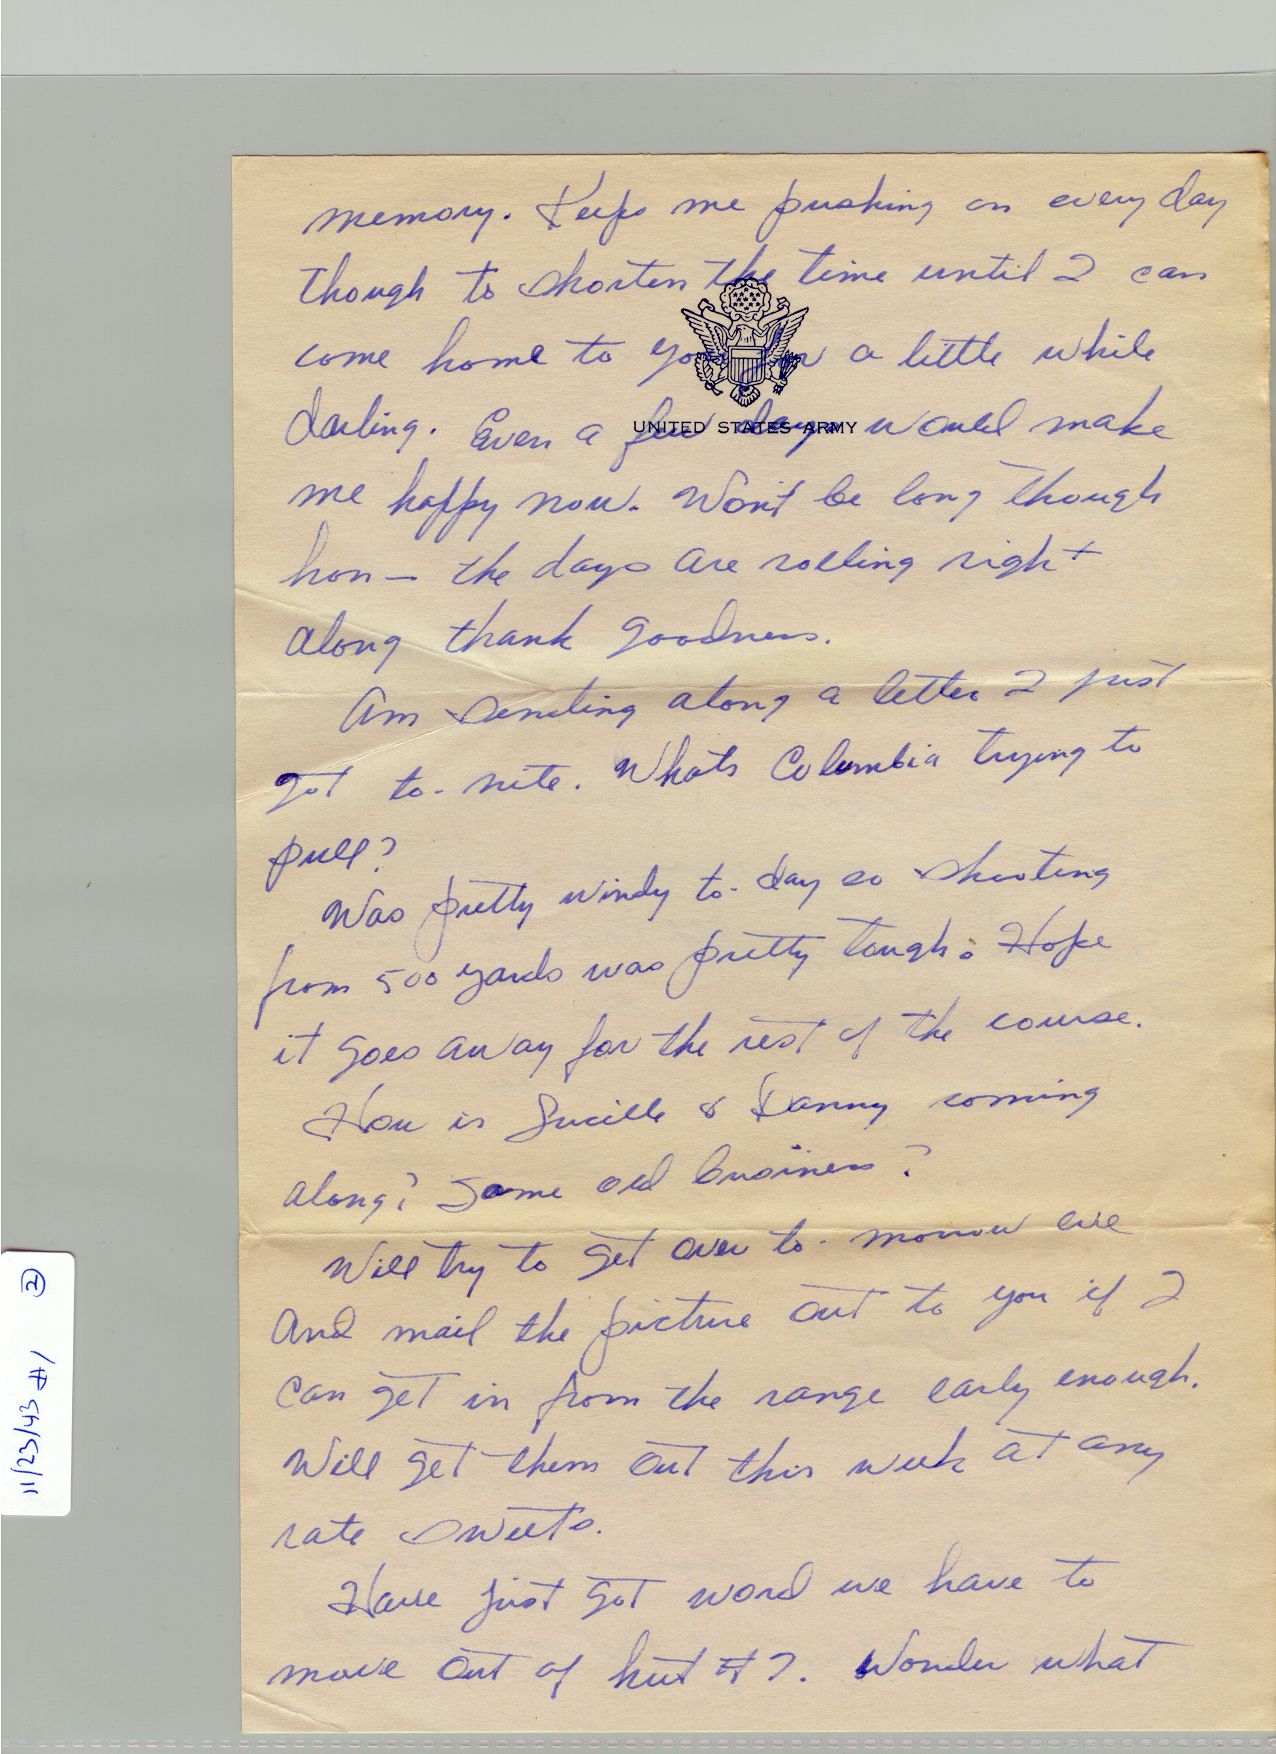 memory. Keeps me pushing on every day
though to shorten the time until I can
come home to you for a little while
darling. Even a few days would make
UNITED STATES ARMY
me happy now. Won't be long though
hon — the days are rolling right
along thank goodness.
Am sending along a letter I just
got to-nite. Whats Columbia trying to
pull?
Was pretty windy to-day so shooting
from 500 yards was pretty tough. Hope
it goes away for the rest of the course.
How is Lucille & Danny coming
along? Same old business?
Will try to get over to-morrow eve
and mail the picture out to you if I
can get in from the range early enough.
Will get them out this week at any
rate sweets.
Have just got word we have to
move out of hut #7. Wonder what
11/23/43 #1 ②